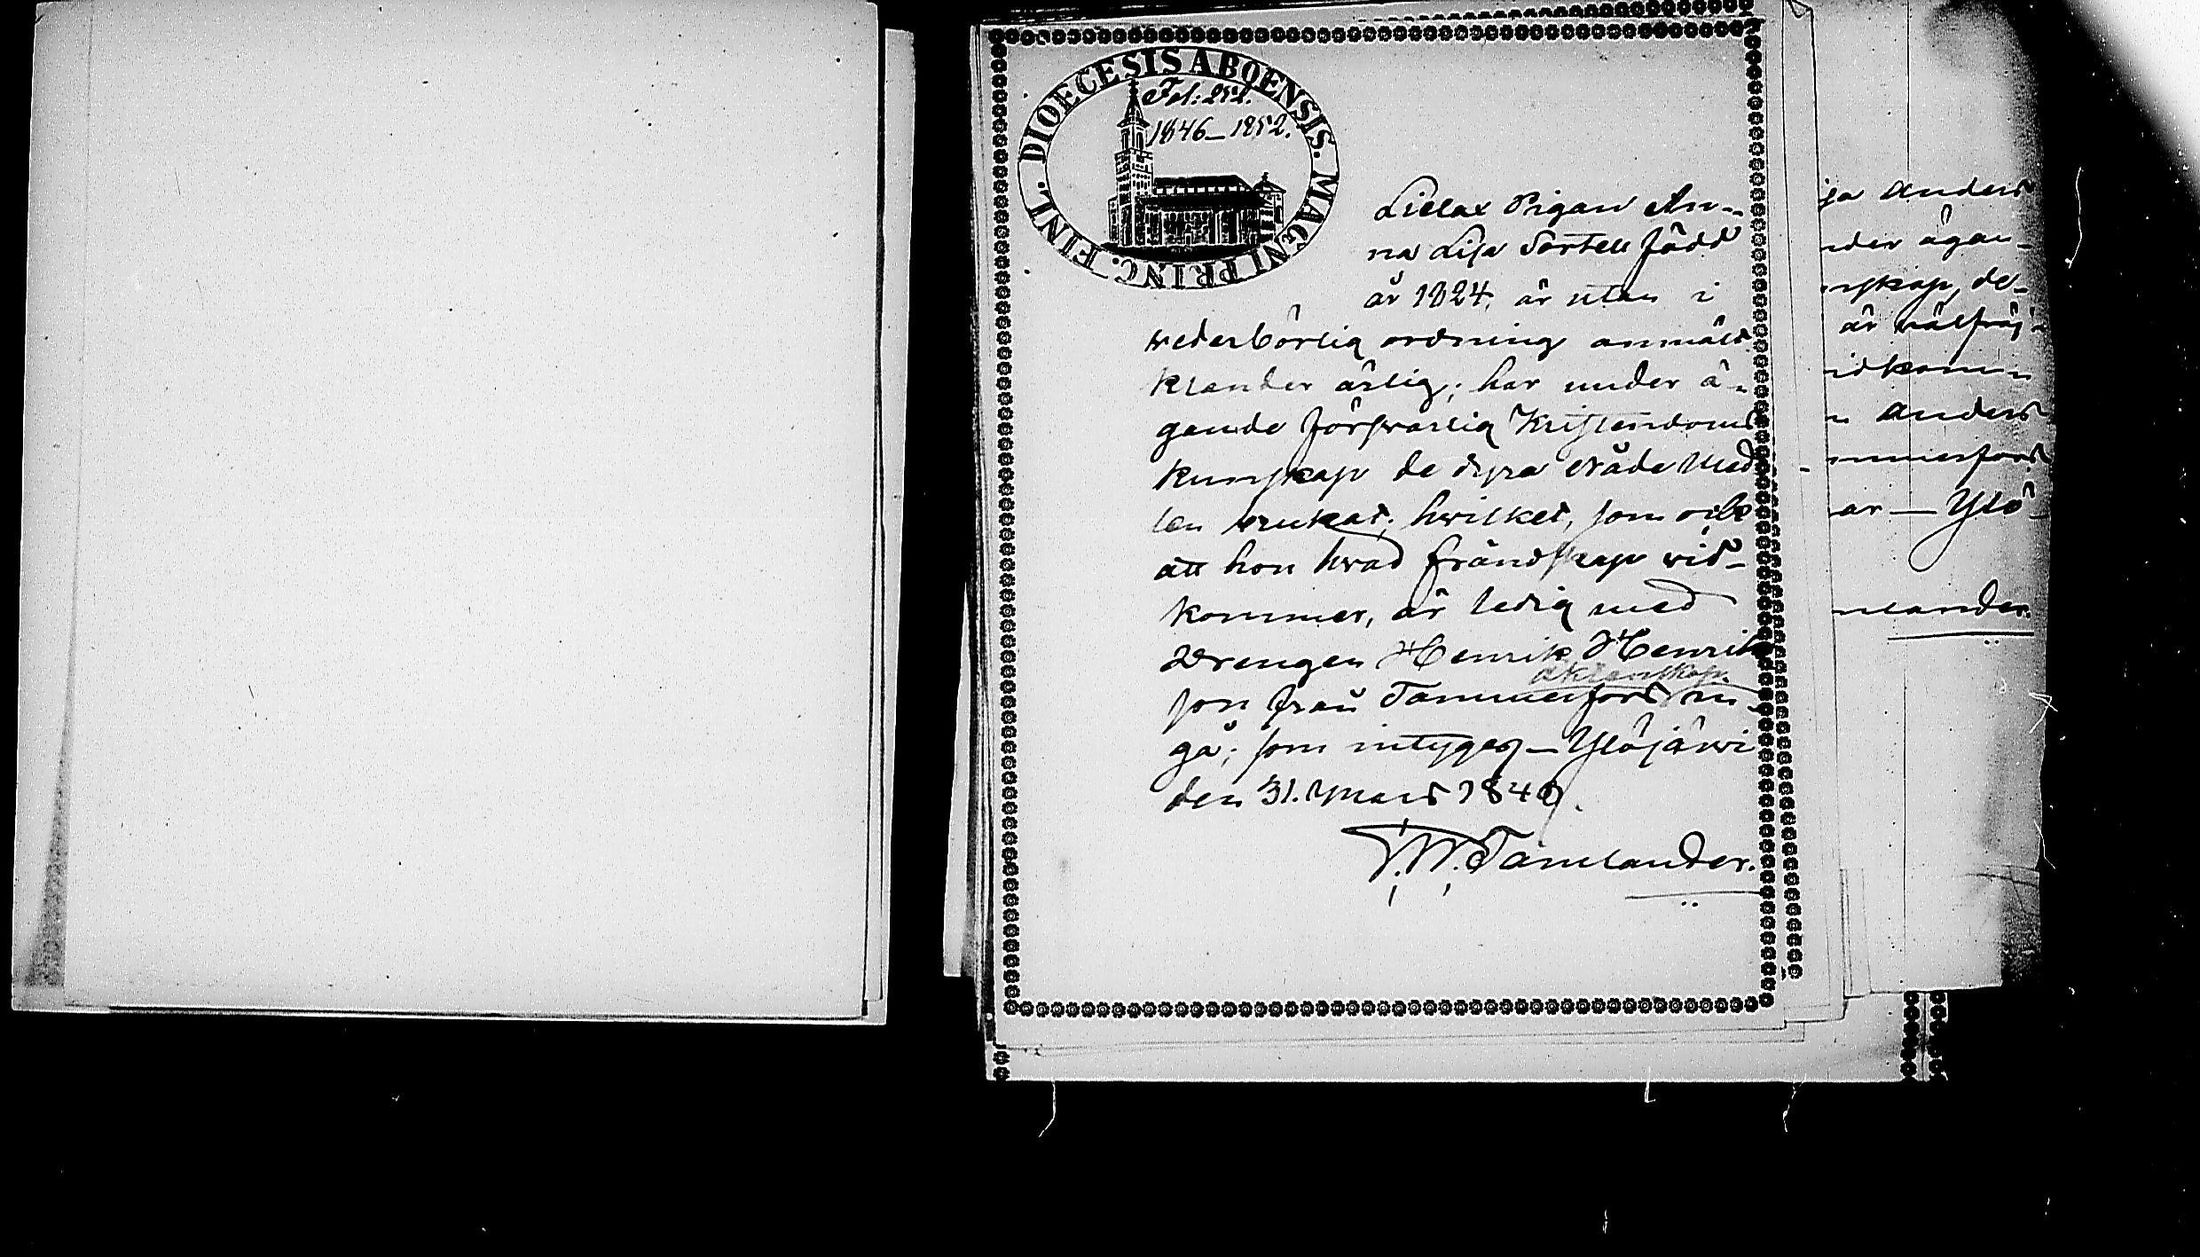 DIOECESIS ABOENSIS. MAGNI PRINC. FINL.
Fol: 252.
1846–1852.
Lielax Pigan An-
na Lisa Sortell född
år 1824, är utan i
wederbörlig ordning anmält
klander ärlig; har under ä-
gande förswarlig Kristendoms
kunskap de dyra Nåde Med
len brukat; hwilket, som ock
att hon hwad frändskap wid-
kommer, är ledig med
Drengen Henrik Henrik
äktenskap
son från Tammerfors in
gå; som intygas – Ylöjärwi
den 31. Mars 1849.
Tamlander.
ja Anders
nder ägan-
nskap, de-
är välfräj-
idkom-
Anders
mmerfors
ar — Ylö-
mlander.